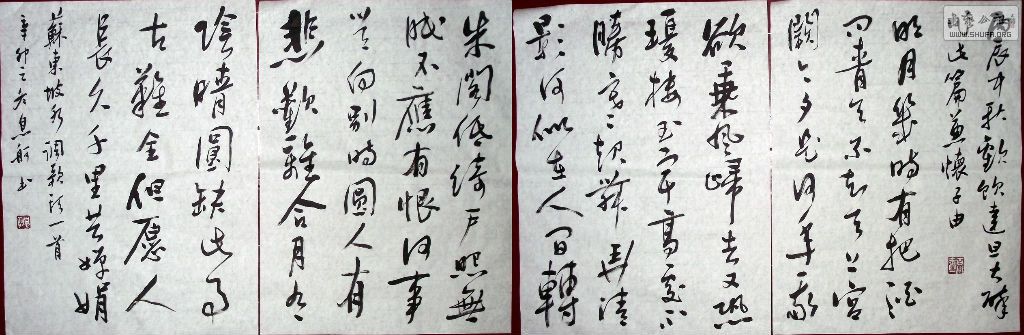 丙辰中秋歡飲達旦大醉
作此篇兼懷子由
明月幾時有把酒
问青天不知天上宮
闕今夕是何年我
欲乘風歸去又恐
瓊樓玉宇高處不
勝寒起舞弄清
影何似在人间轉
朱閣低綺户照無
眠不應有恨何事
长向别時圓人有
悲歡離合月有
陰晴圓缺此事
古難全但愿人
長久千里共嬋娟
蘇東坡水调歌頭一首
辛卯之冬息舸书
WWW.SHUFA.ORG